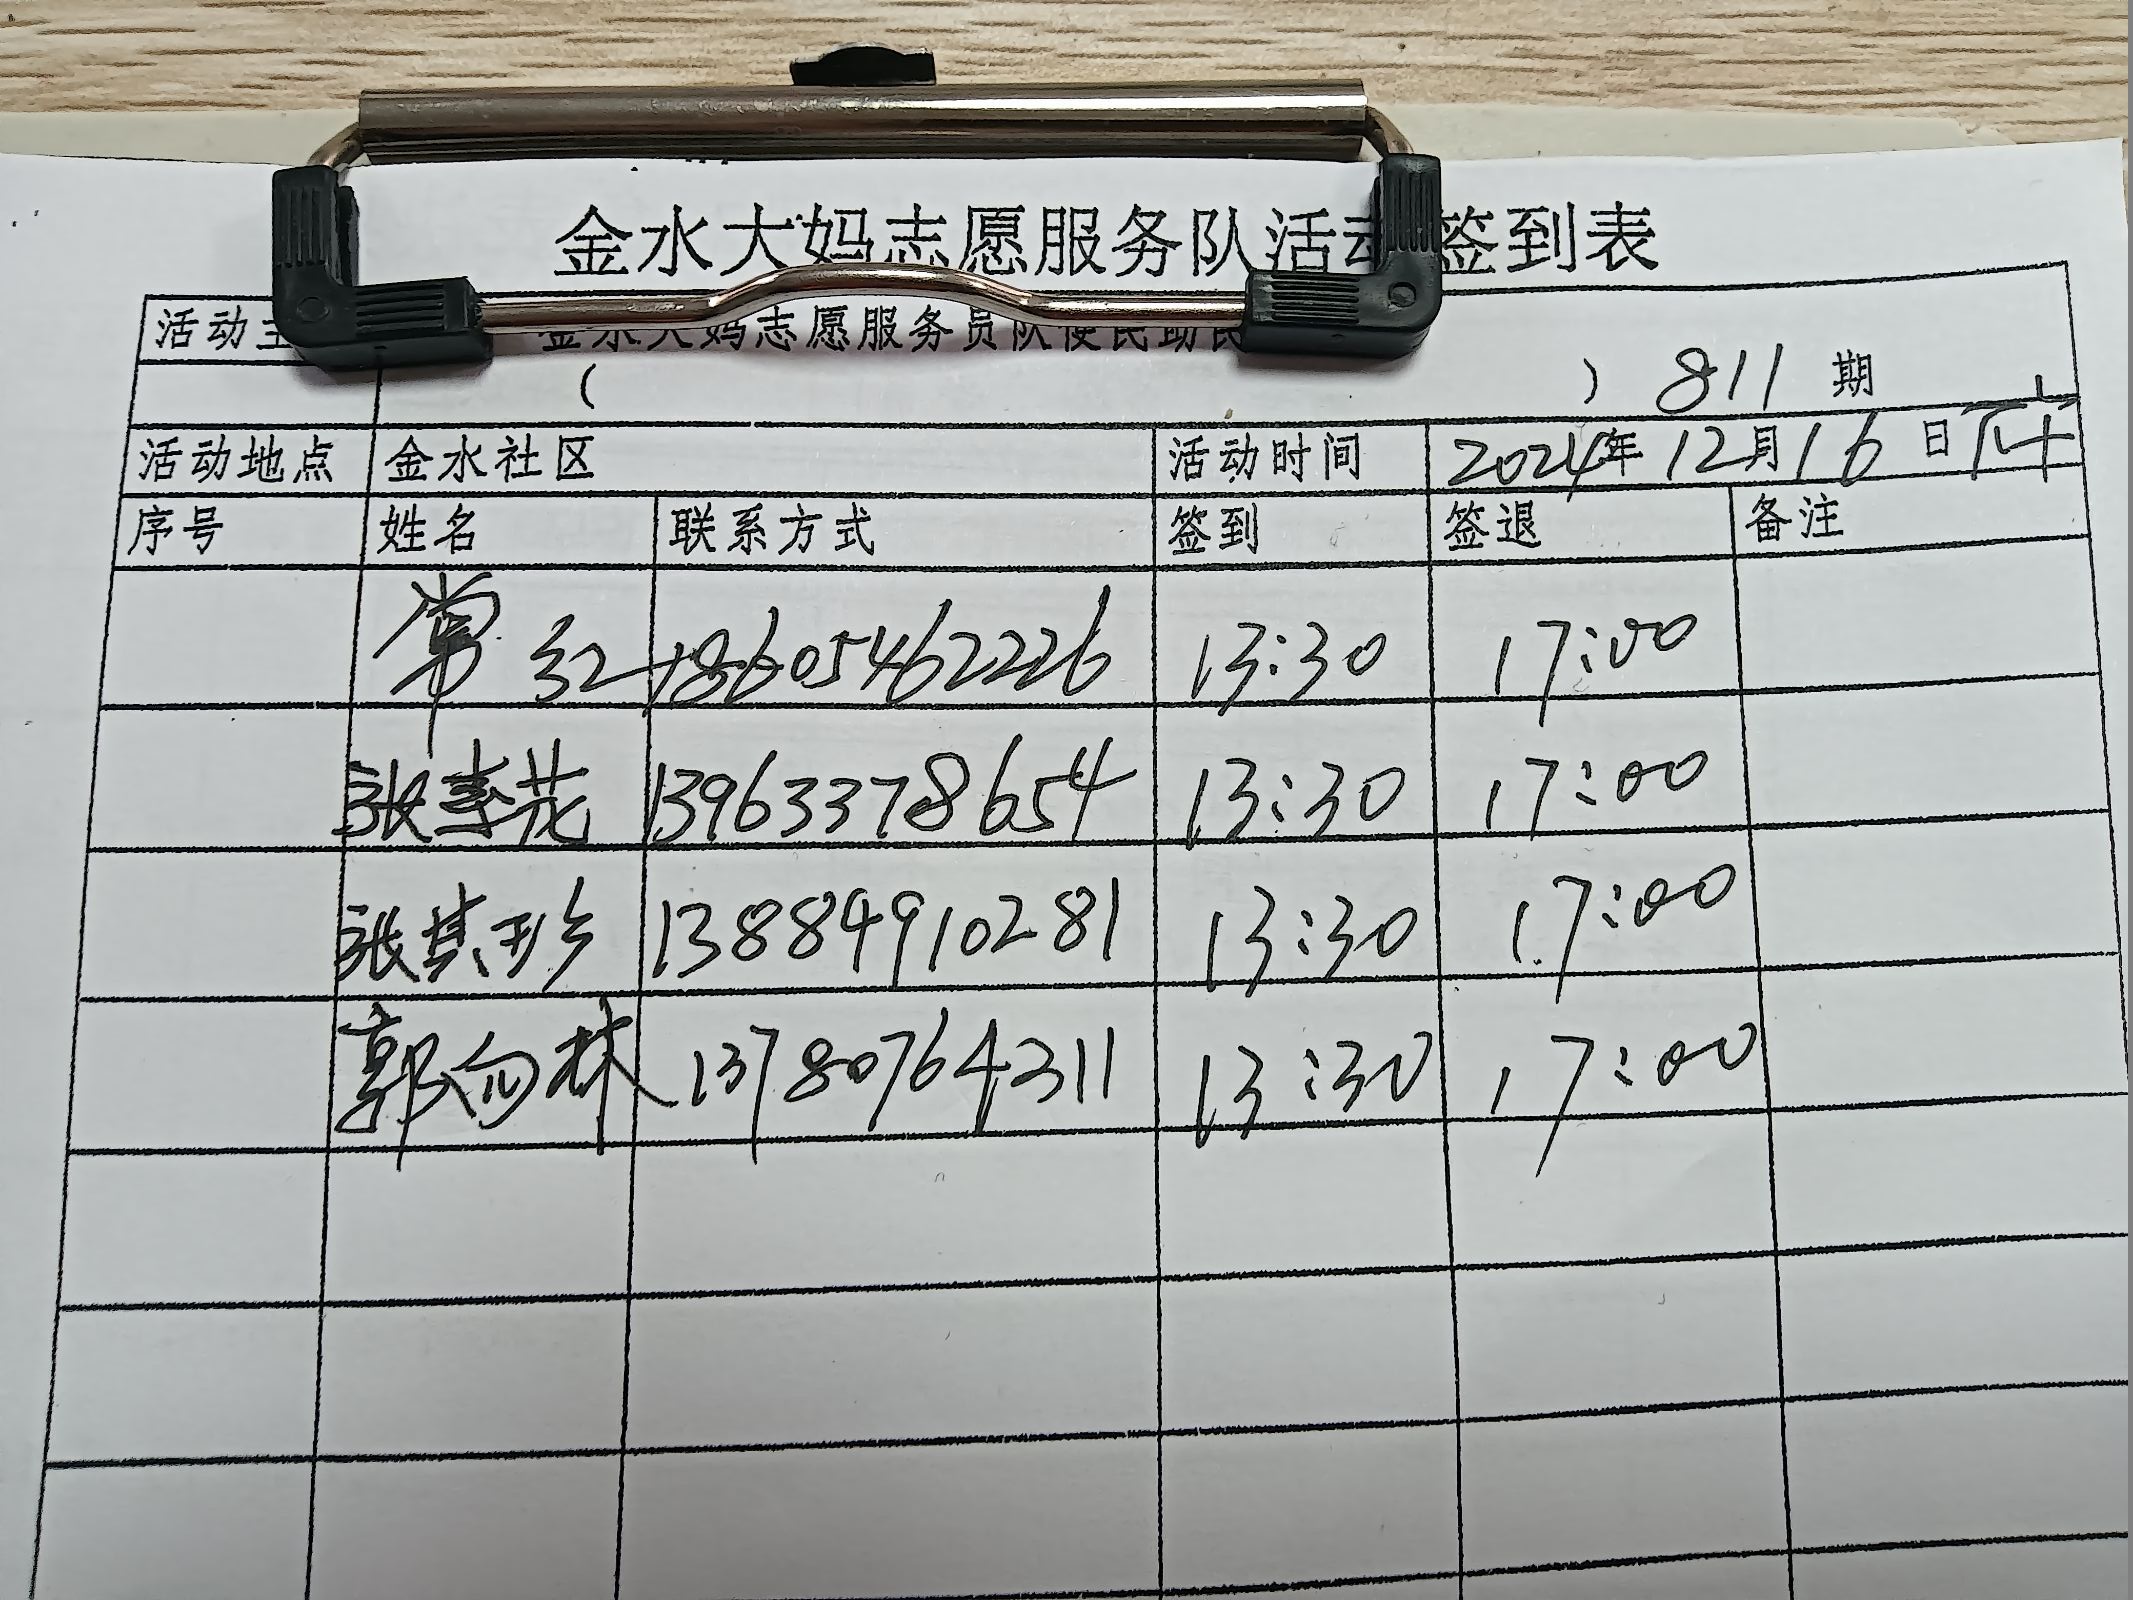 金水大妈志愿服务队活动签到表
活动主 金水大妈志愿服务员队便民助民
( ) 811 期
活动地点 金水社区 活动时间 2024年 12月16日下午
序号 姓名 联系方式 签到 签退 备注
常红 18605462226 13:30 17:00
张素花 13963378654 13:30 17:00
张其珍 13884910281 13:30 17:00
郭向林 13780764311 13:30 17:00